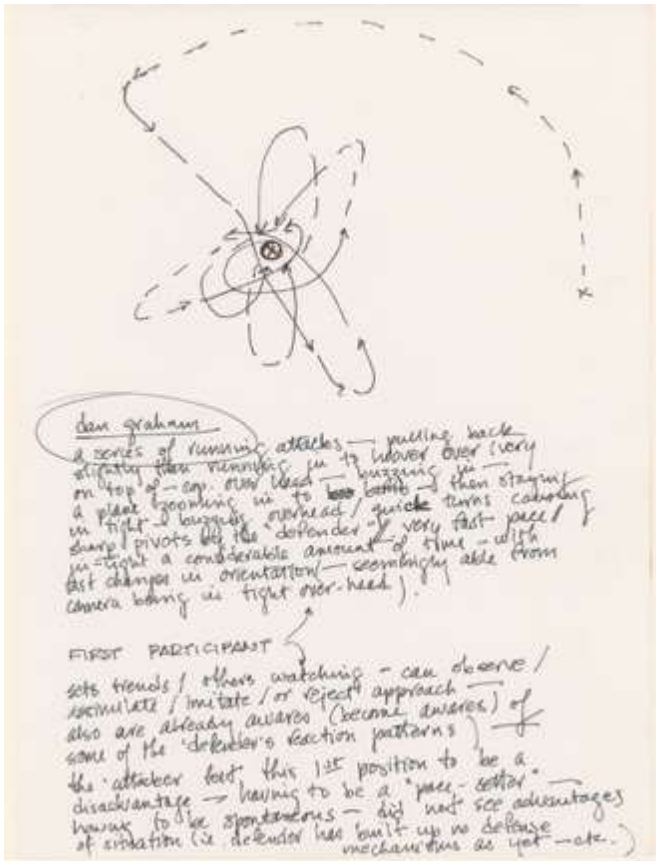 dan graham
a series of running attacks — pulling back
slightly then running in to hover over (very
on top of — esp. over head — buzzing in —
a plane zooming in to bomb — then staying
in tight & buzzing overhead / quick turns causing
sharp pivots by the "defender" — / very fast pace /
in-tight a considerable amount of time — with
fast changes in orientation — seemingly able from
camera being in tight over-head).
FIRST PARTICIPANT
sets trends / others watching — can observe /
assimilate / imitate / or reject approach —
also are already awares (become awares) of
some of the 'defender's reaction patterns)
the 'attacker felt this 1st position to be a
disadvantage → having to be a "pace-setter" —
having to be spontaneous — did not see advantages
of situation (ie defender has built up no defense
mechanisms as yet — etc.)